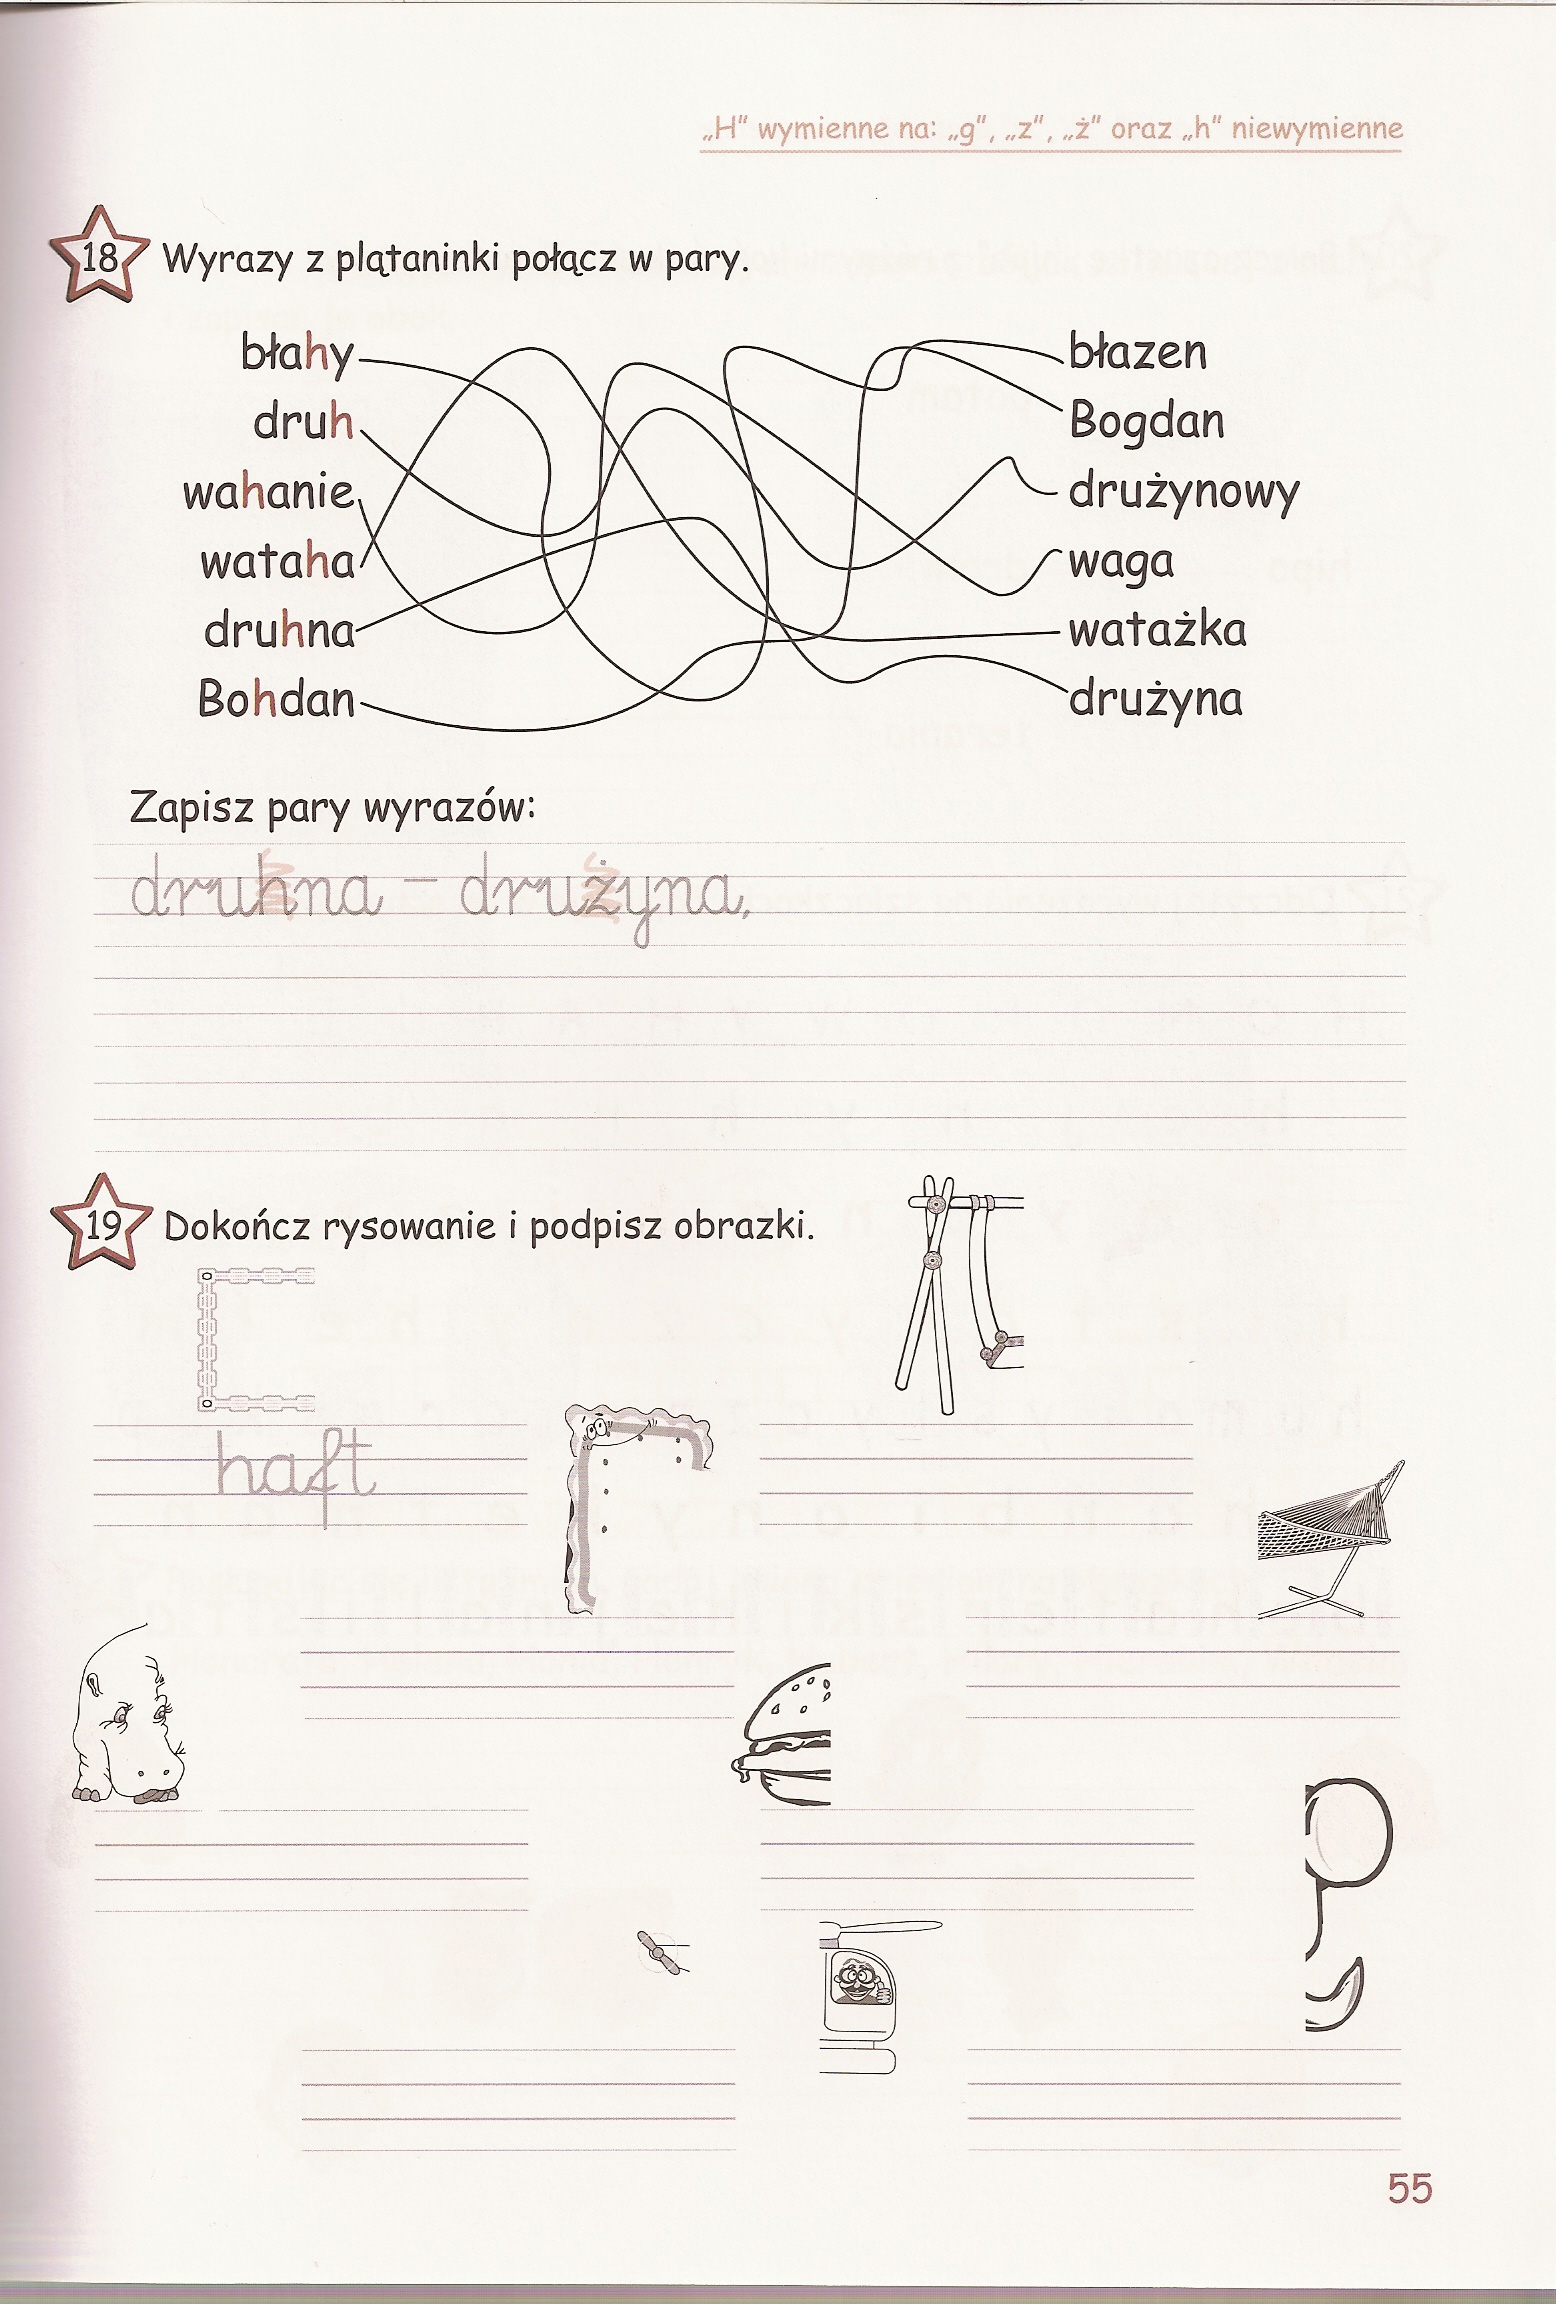 „H" wymienne na: „g", „z", „ż" oraz „h" niewymienne
18 Wyrazy z plątaninki połącz w pary.
błahy błazen
druh Bogdan
wahanie drużynowy
wataha waga
druhna watażka
Bohdan drużyna
Zapisz pary wyrazów:
druhna – drużyna,
19 Dokończ rysowanie i podpisz obrazki.
haft
55